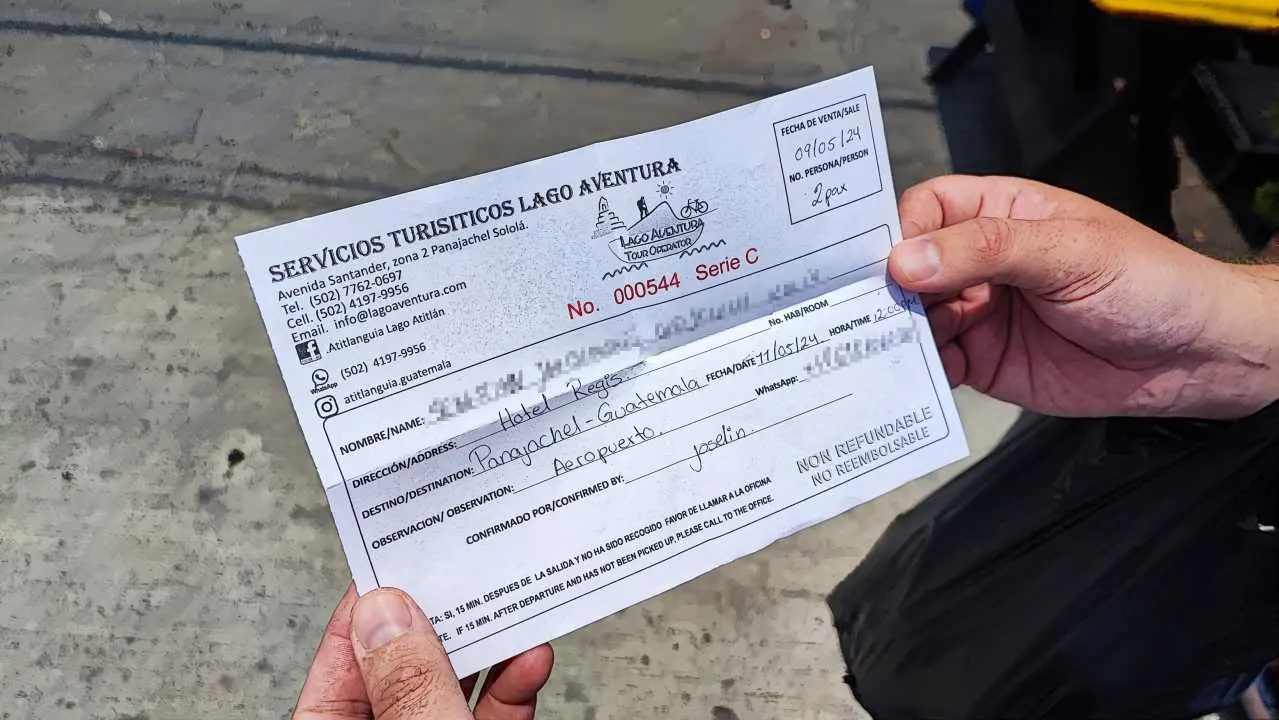 SERVICIOS TURISITICOS LAGO AVENTURA
Avenida Santander, zona 2 Panajachel Sololá.
Tel. (502) 7762-0697
Cell. (502) 4197-9956
Email. info@lagoaventura.com
.Atitlanguia Lago Atitlán
WhatsApp (502) 4197-9956
atitlanguia.guatemala
LAGO AVENTURA
TOUR OPERATOR
No. 000544 Serie C
FECHA DE VENTA/SALE
09/05/24
NO. PERSONA/PERSON
2 pax
NOMBRE/NAME:
DIRECCIÓN/ADDRESS: Hotel Regis No. HAB/ROOM
DESTINO/DESTINATION: Panajachel-Guatemala FECHA/DATE 11/05/24 HORA/TIME 12:00PM
OBSERVACION/ OBSERVATION: Aeropuerto. WhatsApp:
CONFIRMADO POR/CONFIRMED BY: Joselin.
NON REFUNDABLE
NO REEMBOLSABLE
TA: SI, 15 MIN. DESPUES DE LA SALIDA Y NO HA SIDO RECOGIDO FAVOR DE LLAMAR A LA OFICINA
TE. IF 15 MIN. AFTER DEPARTURE AND HAS NOT BEEN PICKED UP, PLEASE CALL TO THE OFFICE.